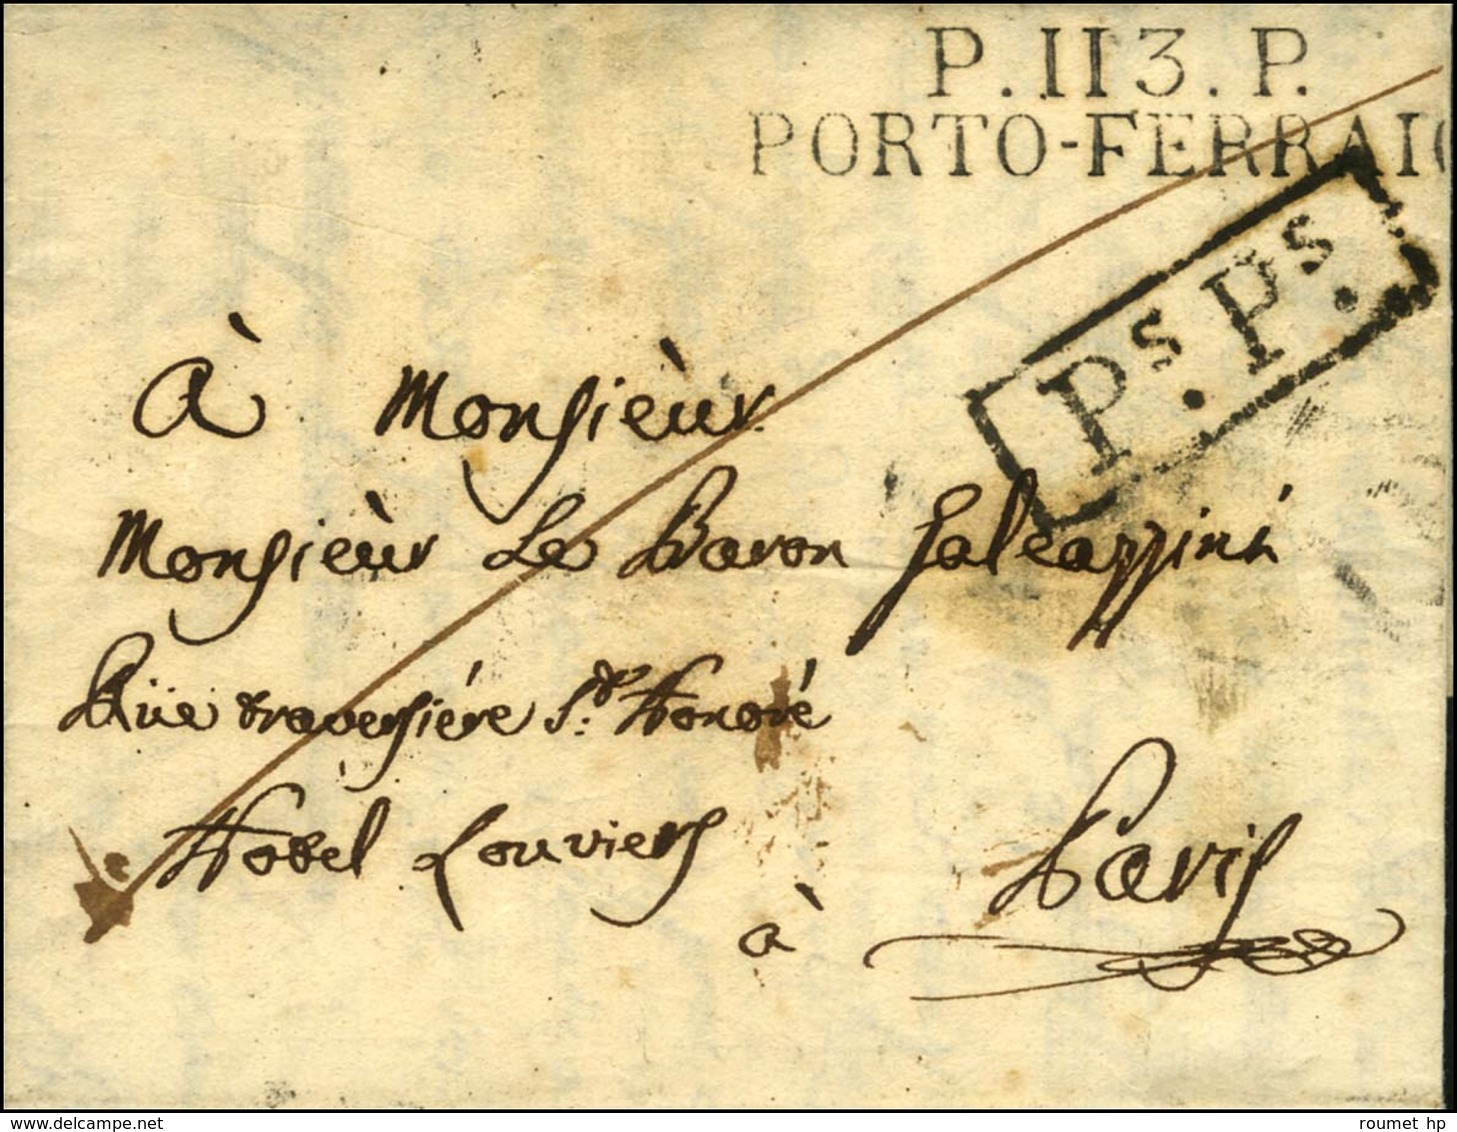 P.113.P.
PORTO-FERRAIO
Ps. Ps.
à Monsieur
Monsieur Le Baron Galeazzini
Rüe traversière St. Honoré
Hotel Louviers
à Paris
delcampe.net
roumet hp